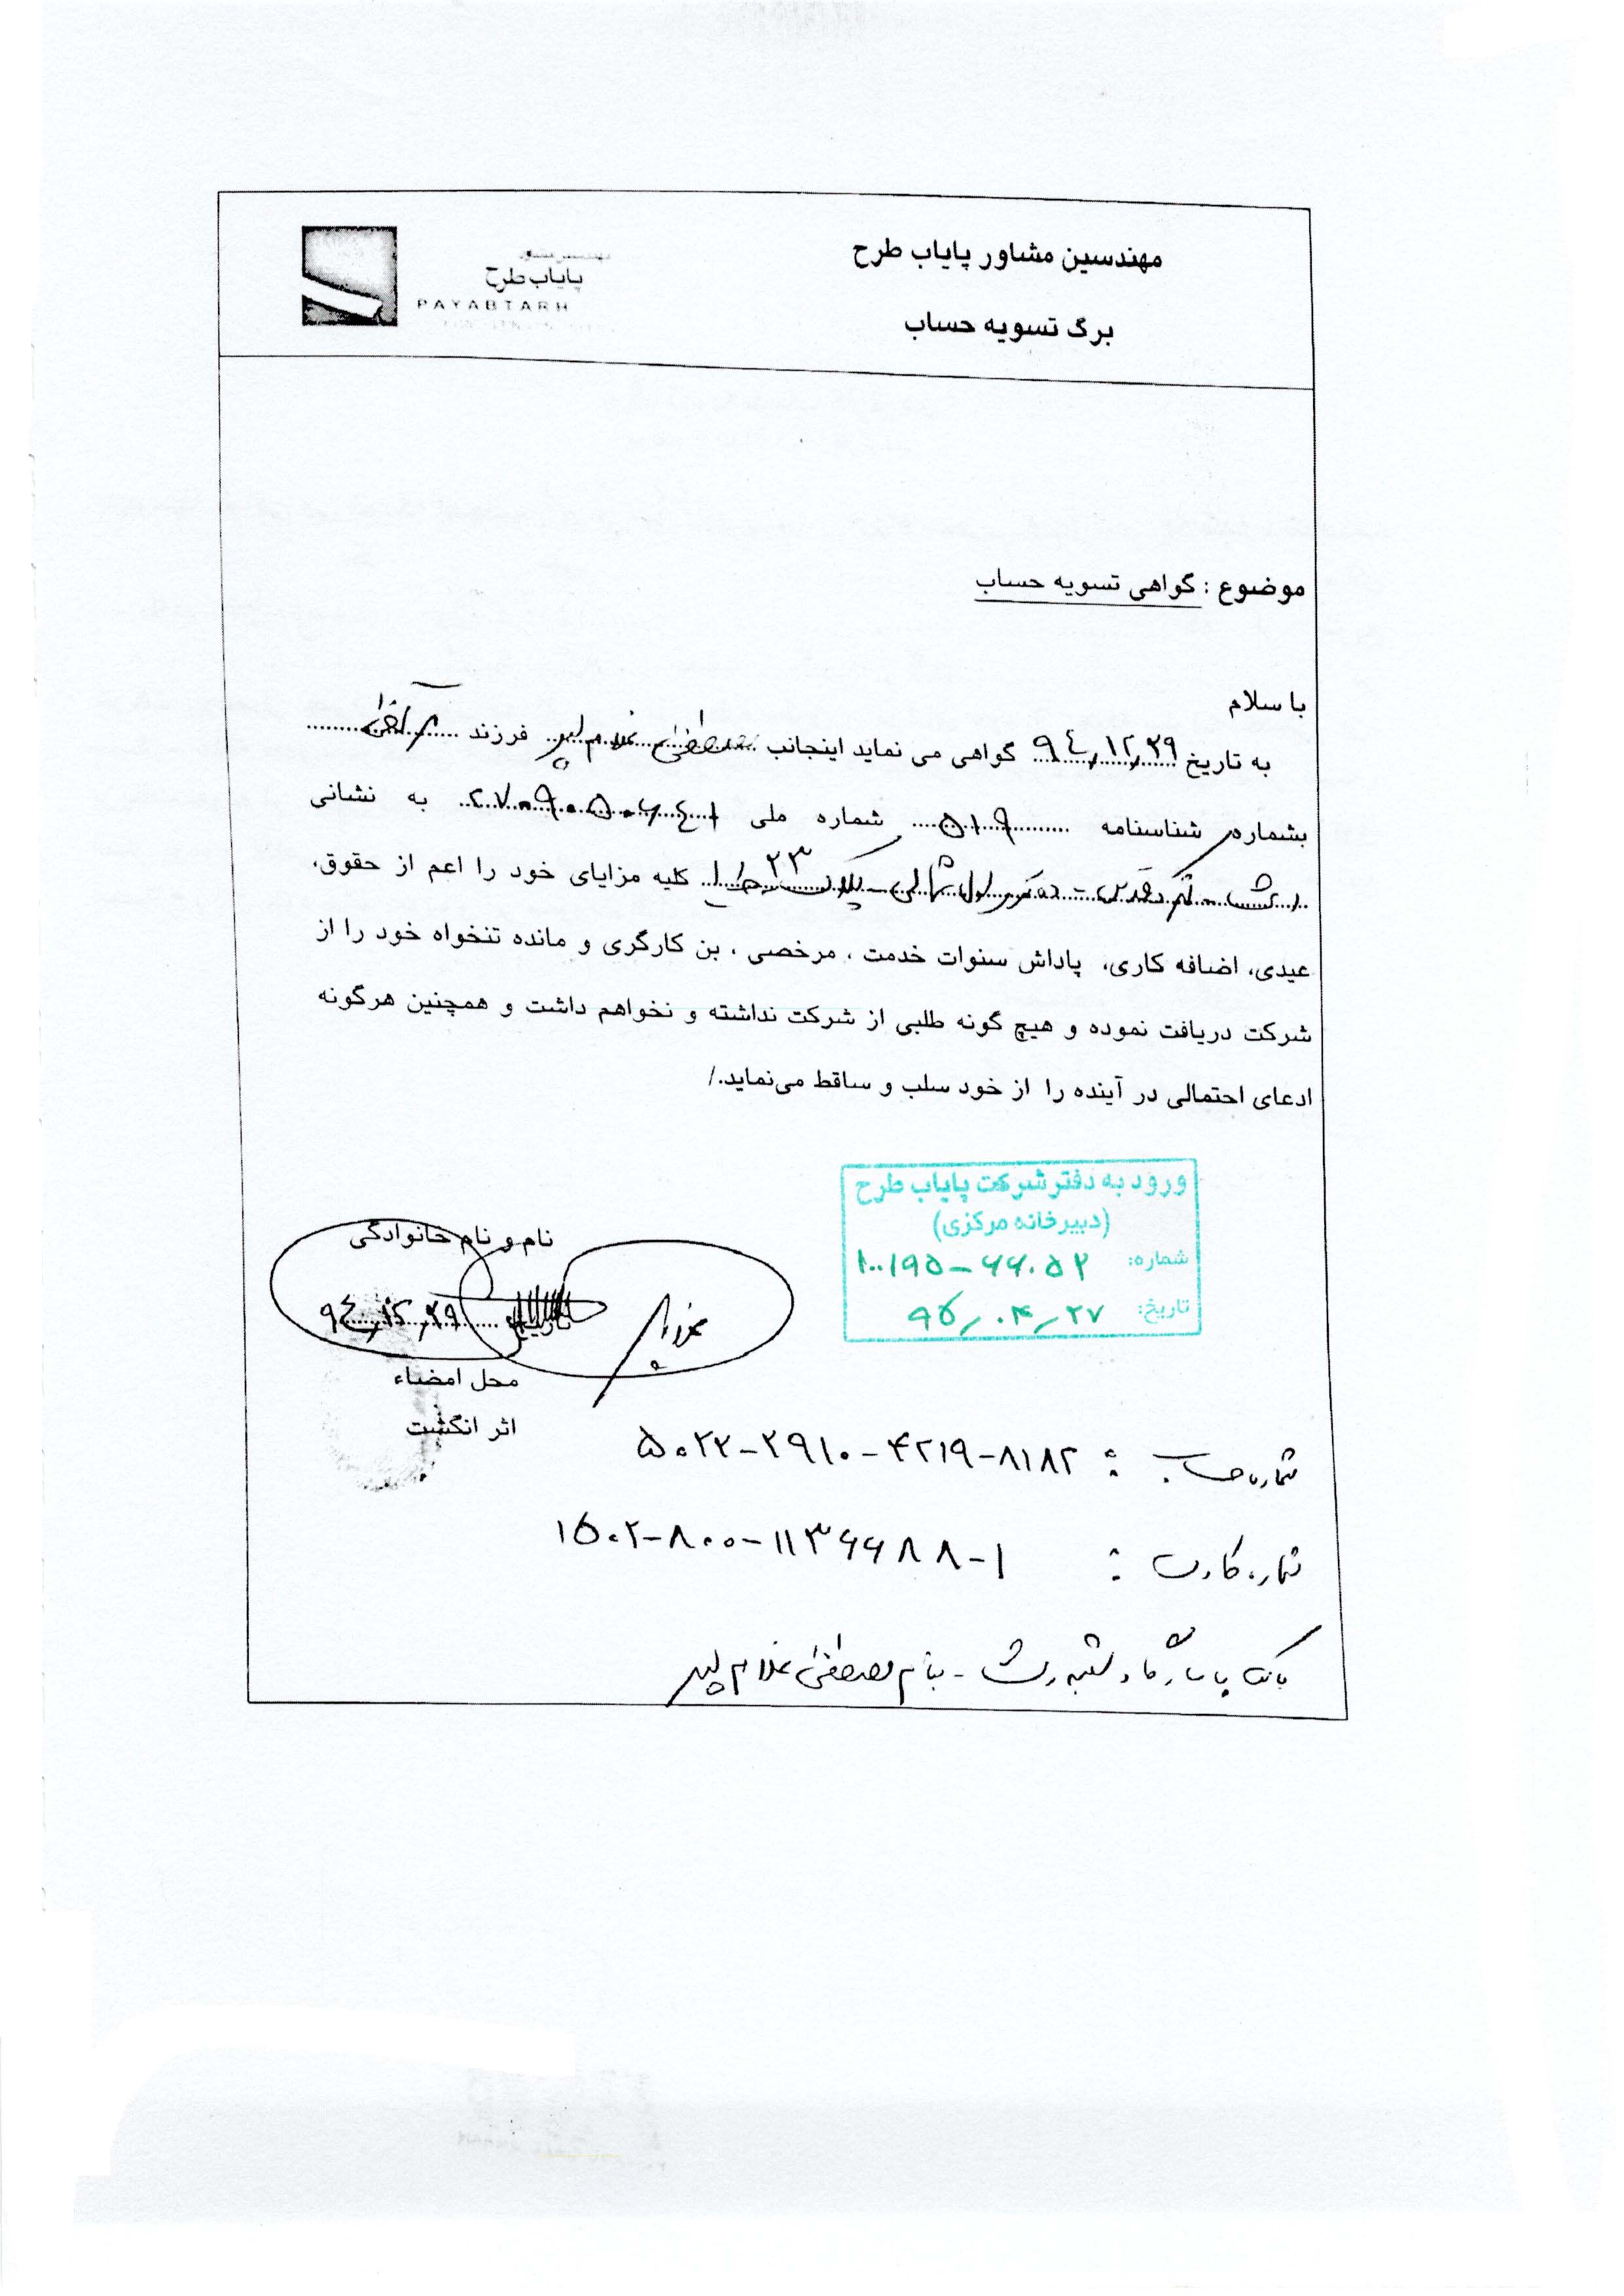 مهندسین مشاور پایاب طرح
برگ تسویه حساب
مهندسین مشاور
پایاب طرح
PAYABTARH
موضوع : گواهی تسویه حساب
با سلام
به تاریخ ۹٤٫۱۲٫۲۹ گواهی می نماید اینجانب مصطفی غلام پور فرزند
بشماره شناسنامه ۵۱۹ شماره ملی ۲۷۰۹۰۵۰۶٤۱ به نشانی
رشت - اول شمالی - پلاک ۲۳ کلیه مزایای خود را اعم از حقوق،
عیدی، اضافه کاری، پاداش سنوات خدمت ، مرخصی ، بن کارگری و مانده تنخواه خود را از
شرکت دریافت نموده و هیچ گونه طلبی از شرکت نداشته و نخواهم داشت و همچنین هرگونه
ادعای احتمالی در آینده را از خود سلب و ساقط می‌نماید./
ورود به دفتر شرکت پایاب طرح
(دبیرخانه مرکزی)
شماره: ۱۰۰۱۹۵-۶۶۰۵۲
تاریخ: ۹۵٫۰۴٫۲۷
نام و نام خانوادگی
تاریخ ۹٤٫۱۲٫۲۹
محل امضاء
اثر انگشت
شماره حساب : ۵۰۲۲-۲۹۱۰-۴۲۱۹-۸۱۸۲
شماره کارت : ۱۵۰۲-۸۰۰-۱۱۳۶۶۸۸-۱
بانک پاسارگاد شعبه رشت - بنام مصطفی غلام پور